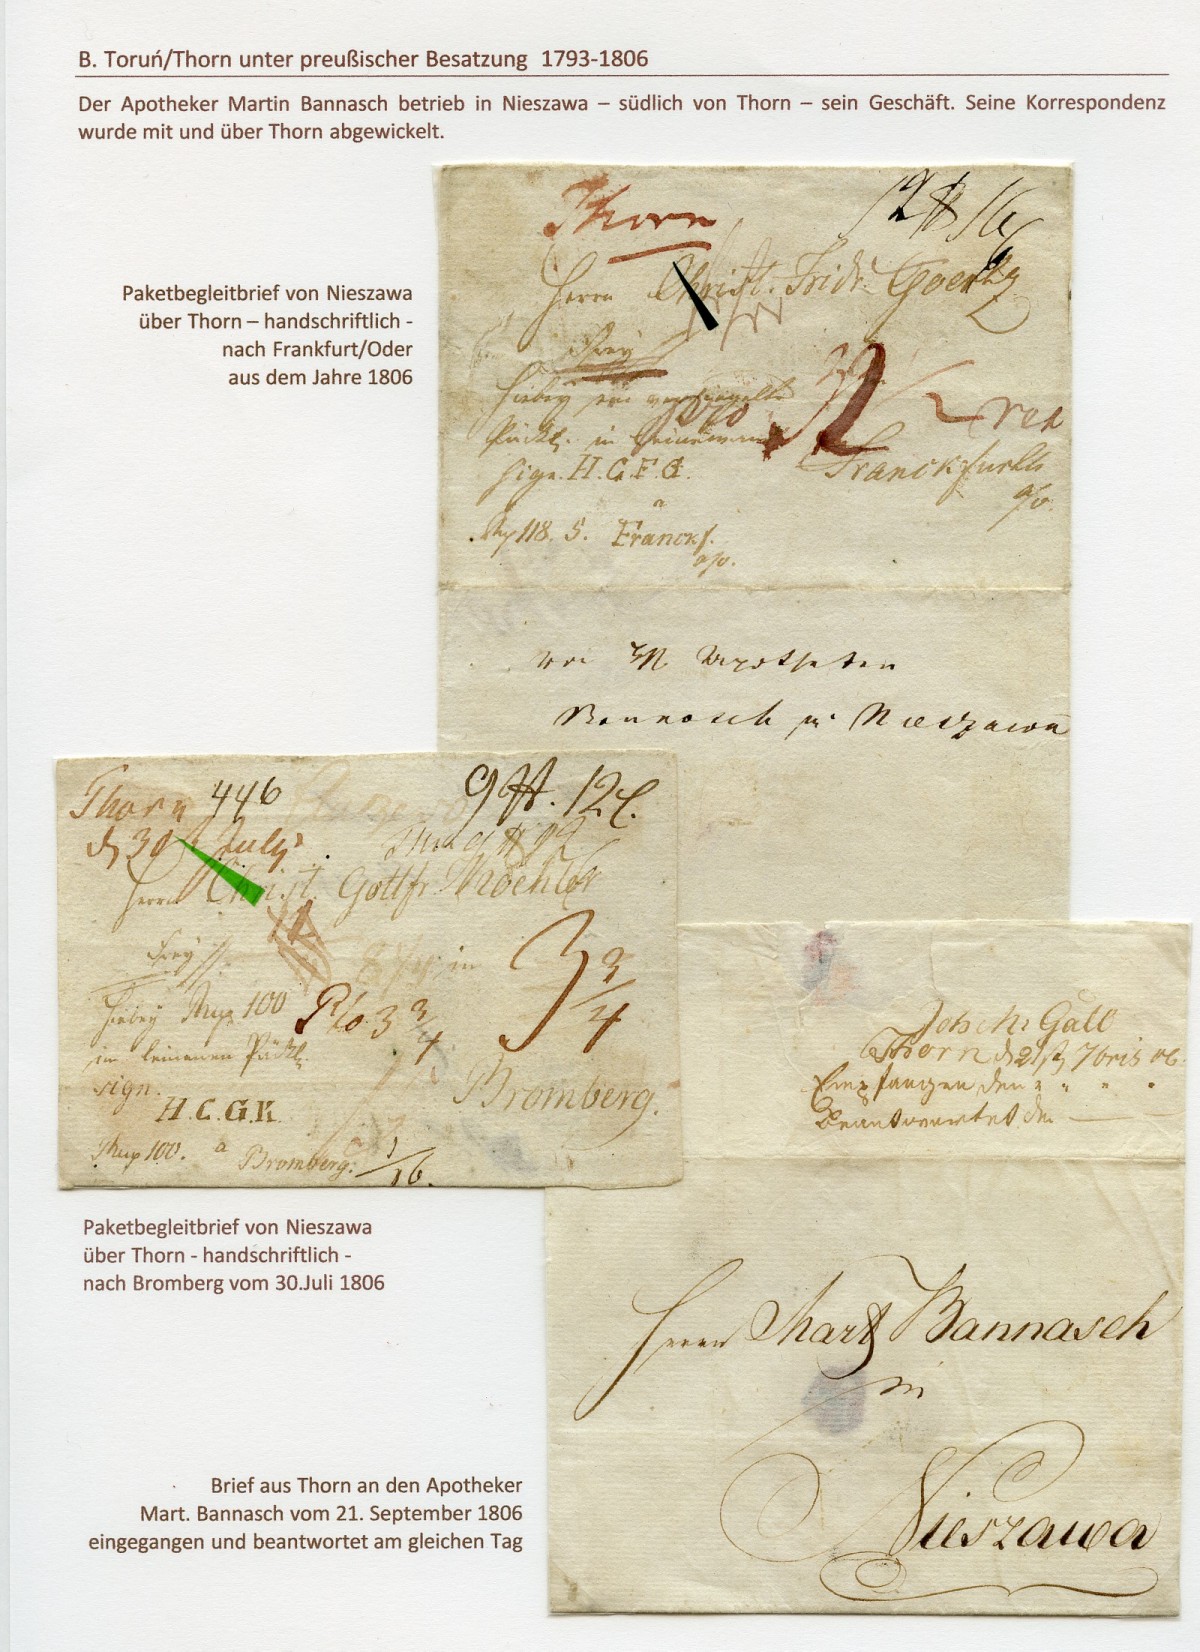 B. Toruń/Thorn unter preußischer Besatzung 1793-1806
Der Apotheker Martin Bannasch betrieb in Nieszawa – südlich von Thorn – sein Geschäft. Seine Korrespondenz
wurde mit und über Thorn abgewickelt.
Paketbegleitbrief von Nieszawa
über Thorn – handschriftlich -
nach Frankfurt/Oder
aus dem Jahre 1806
Thorn
Herrn Christ. Fridr. Goertz
Frey
Hiebey ein versiegeltes
Päckl. in
sign. H.C.F.G.
Franckfurth
a/o.
a
118. 5. Franckf.
a/o.
Apotheker
Bannasch in Nieszawa
Thorn 446
d 30 July
Herrn Christ. Gottfr.
Frey
Hiebey 100 Pto. 3 3/4
3 3/4
in leinenen Päckl.
sign.
H.C.G.K.
Bromberg.
100. a Bromberg.
1/16.
Paketbegleitbrief von Nieszawa
über Thorn - handschriftlich -
nach Bromberg vom 30.Juli 1806
Joh. Gall
Thorn d 21st 7bris 06.
Empfangen den
Beantwortet den
Herrn Mart Bannasch
in
Nieszawa
Brief aus Thorn an den Apotheker
Mart. Bannasch vom 21. September 1806
eingegangen und beantwortet am gleichen Tag